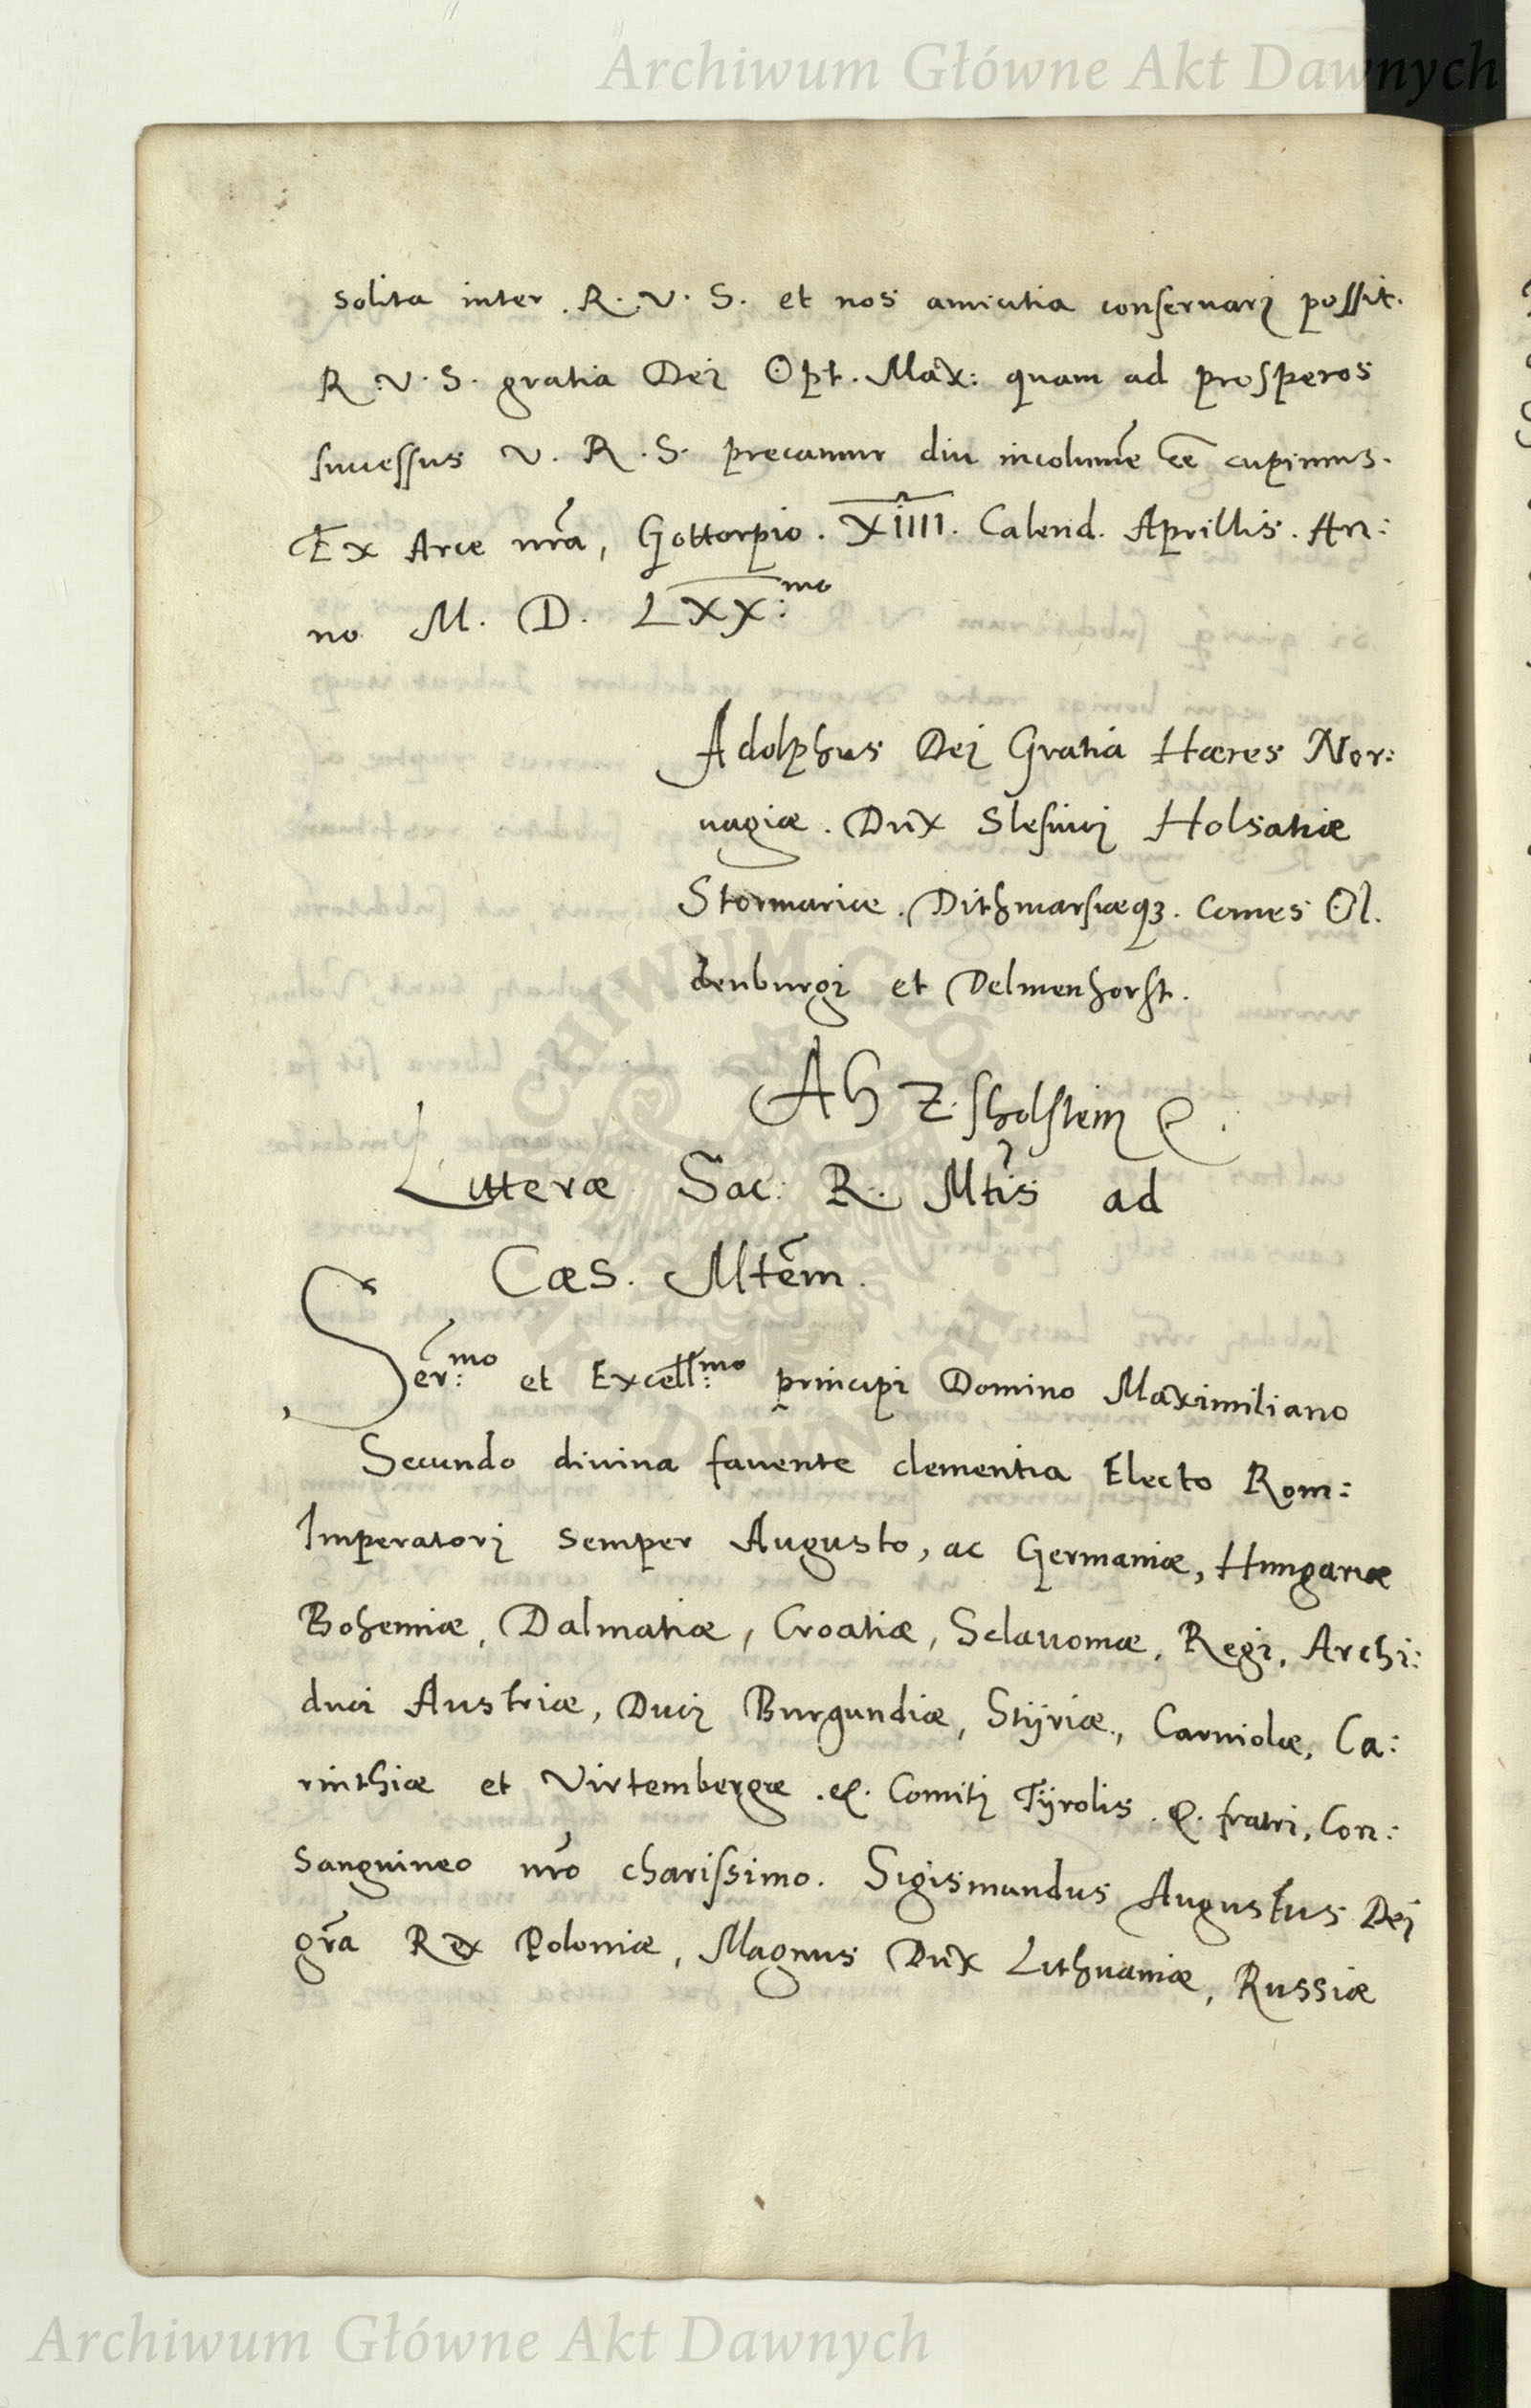 Archiwum Główne Akt Dawnych
solita inter R. V. S. et nos amicitia conseruari possit.
R. V. S. gratia Dei Opt. Max: quam ad prosperos
successus V. R. S. precamur diu incolumē eē cupimus.
Ex Arce nr̃a, Gottorpio. XIIII. Calend. Aprillis. An:
no M. D. LXX:mo
Adolphus Dei Gratia Hæres Nor:
uagiæ. Dux Slesuici Holsatiæ
Stormariæ. Dithmarsiæq3. Comes Ol.
denburgi et Delmenhorst.
AH Z. sholstein
Litteræ Sac: R. Mtis ad
Cæs. Mtēm.
Ser:mo et Excell:mo principi Domino Maximiliano
Secundo diuina fauente clementia Electo Rom:
Imperatori semper Augusto, ac Germaniæ, Hungariæ
Bohemiæ, Dalmatiæ, Croatiæ, Sclauoniæ, Regi, Archi:
duci Austriæ, Duci Burgundiæ, Stÿriæ, Carniolæ, Ca:
rinthiæ et Virtembergæ. &. Comiti Tÿrolis. &. fratri, Con:
sanguineo nr̃o charissimo. Sigismundus Augustus Dei
gr̃a Rex Poloniæ, Magnus Dux Lithuaniæ, Russiæ
ARCHIWUM GŁÓWNE
AKT DAWNYCH
Archiwum Główne Akt Dawnych